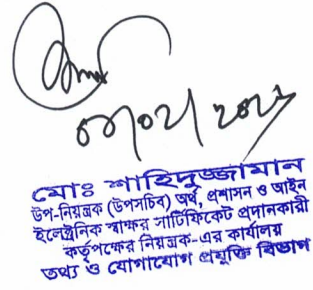 মোঃ শাহিদুজ্জামান
উপ-নিয়ন্ত্রক (উপসচিব) অর্থ, প্রশাসন ও আইন
ইলেক্ট্রনিক স্বাক্ষর সার্টিফিকেট প্রদানকারী
কর্তৃপক্ষের নিয়ন্ত্রক-এর কার্যালয়
তথ্য ও যোগাযোগ প্রযুক্তি বিভাগ